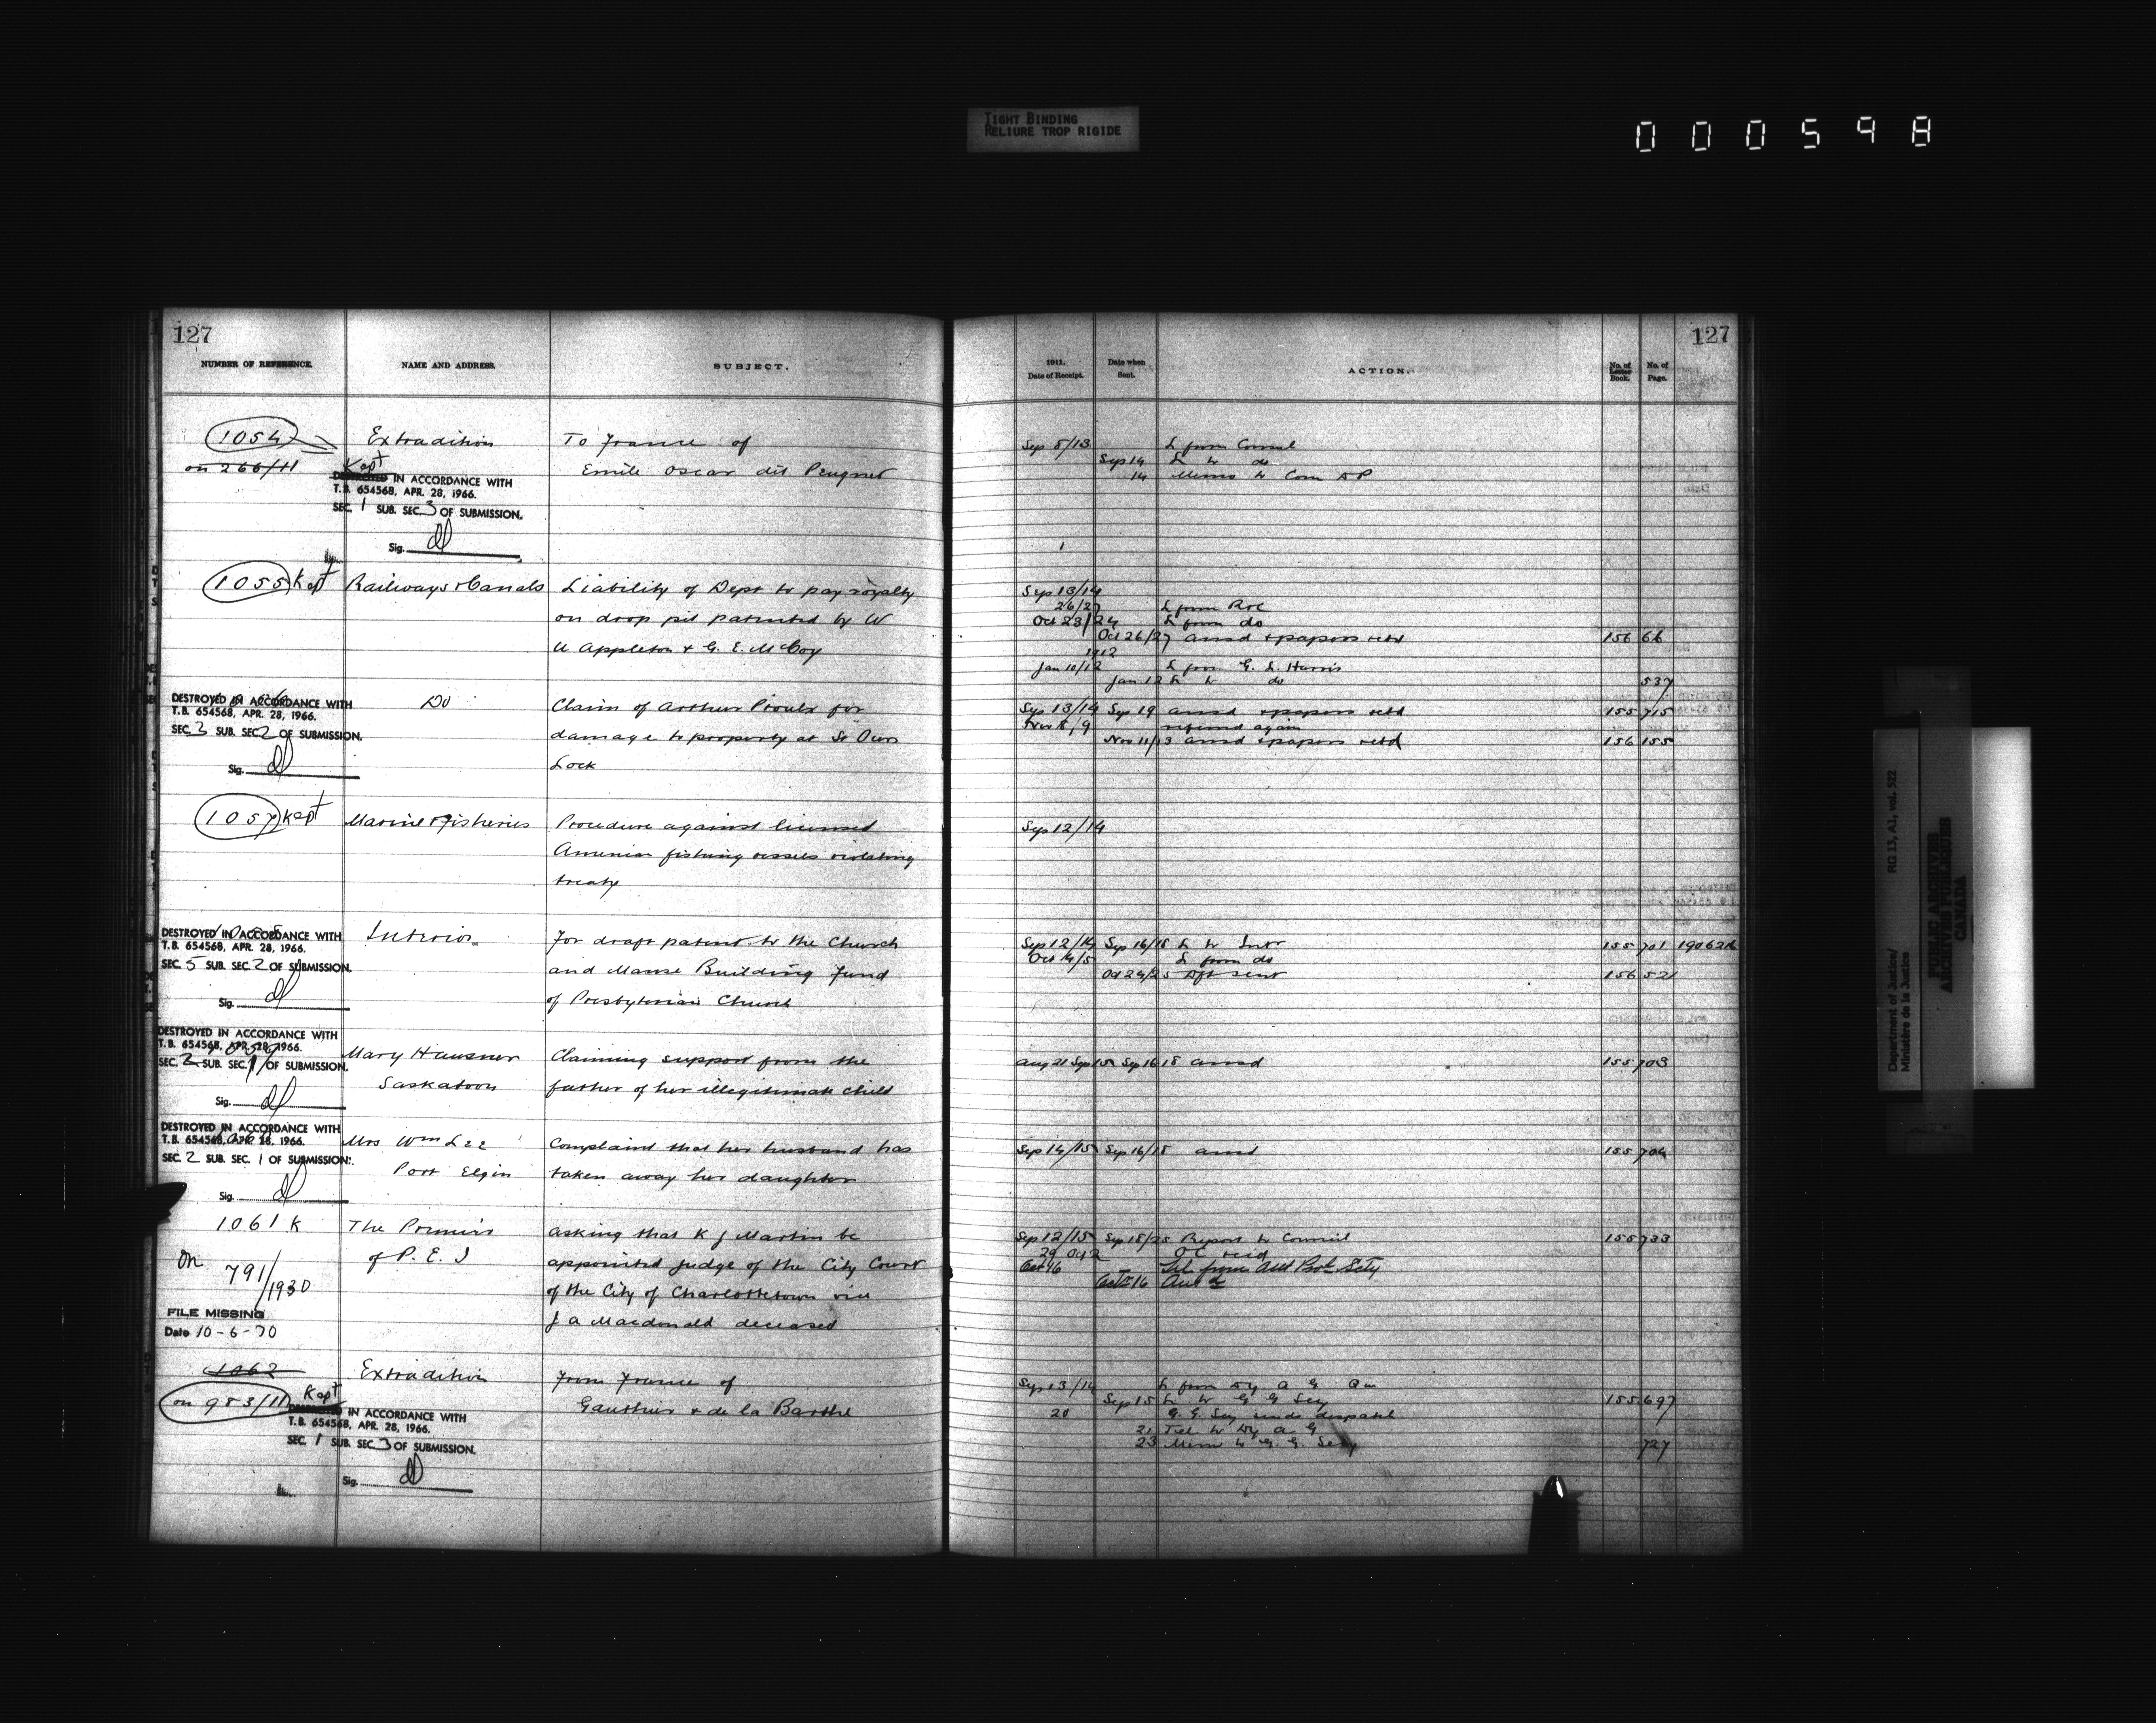 TIGHT BINDING
RELIURE TROP RIGIDE
000598
127
NUMBER OF REFERENCE.
NAME AND ADDRESS.
SUBJECT.
1054
on 266/11
Kept
DESTROYED IN ACCORDANCE WITH
T.B. 654568, APR. 28, 1966.
SEC. 1 SUB. SEC. 3 OF SUBMISSION.
Sig.
Extradition
To France of
Emile Oscar dit Peugnet
1055 Kept
Railways & Canals
Liability of Dept to pay royalty
on drop pit patented by W
U Appleton & G. E. McCoy
DESTROYED IN ACCORDANCE WITH
T.B. 654568, APR. 28, 1966.
SEC. 3 SUB. SEC. 2 OF SUBMISSION.
Sig.
Do
Claim of Arthur Proulx for
damage to property at St Ours
Lock
1057 Kept
Marine & Fisheries
Procedure against licensed
American fishing vessels violating
treaty
1058
DESTROYED IN ACCORDANCE WITH
T.B. 654568, APR. 28, 1966.
SEC. 5 SUB. SEC. 2 OF SUBMISSION.
Sig.
Interior
For draft patent to the Church
and Manse Building Fund
of Presbyterian Church
DESTROYED IN ACCORDANCE WITH
T.B. 654568, APR. 28, 1966.
1059
SEC. 2 SUB. SEC. 1 OF SUBMISSION.
Sig.
Mary Hausner
Saskatoon
Claiming support from the
father of her illegitimate child
DESTROYED IN ACCORDANCE WITH
T.B. 654568, APR. 28, 1966.
SEC. 2 SUB. SEC. 1 OF SUBMISSION.
Sig.
Mrs Wm Lee
Port Elgin
Complaint that her husband has
taken away her daughter
1061 K
on 791/1930
FILE MISSING
Date 10-6-70
The Premier
of P. E. I
Asking that K J Martin be
appointed Judge of the City Court
of the City of Charlottetown vice
J A Macdonald deceased
1062
on 983/11
Kept
DESTROYED IN ACCORDANCE WITH
T.B. 654568, APR. 28, 1966.
SEC. 1 SUB. SEC. 3 OF SUBMISSION.
Sig.
Extradition
From France of
Gauthier & de la Barthe
127
1911.
Date of Receipt.
Date when
Sent.
ACTION.
No. of
Letter
Book.
No. of
Page.
Sep 8/13 L from Consul
Sep 14 L to do
14 Memo to Com D P
Sep 13/14
26/27 L from R&C
Oct 23/24 L from do
Oct 26/27 ansd & papers retd 156 66
1912
Jan 10/12 L from G. L. Harris
Jan 12 L to do 537
Sep 13/14 Sep 19 ansd & papers retd 155 715
Nov 8/9 referred again
Nov 11/13 ansd & papers retd 156 155
Sep 12/14
Sep 12/14 Sep 16/18 L to Intr 155 701
Oct 4/5 L from do
Oct 24/25 Dft sent 156 52
Aug 21 Sep 15 Sep 16 18 ansd 155 703
Sep 14/15 Sep 16/18 ansd 155 704
Sep 12/15 Sep 18/25 Report to Council 155 733
29 Oct 2 O C recd
Oct 16 Tel from
Oct 16 Ansd
Sep 13/14 L from Dy A G
Sep 15 L to G G Secy 155 697
20 G. G. Secy sends despatch
21 Tel to Dy A G
23 Memo to G. G. Secy 727
Department of Justice/
Ministère de la Justice
RG 13, A1, vol. 522
PUBLIC ARCHIVES
ARCHIVES PUBLIQUES
CANADA